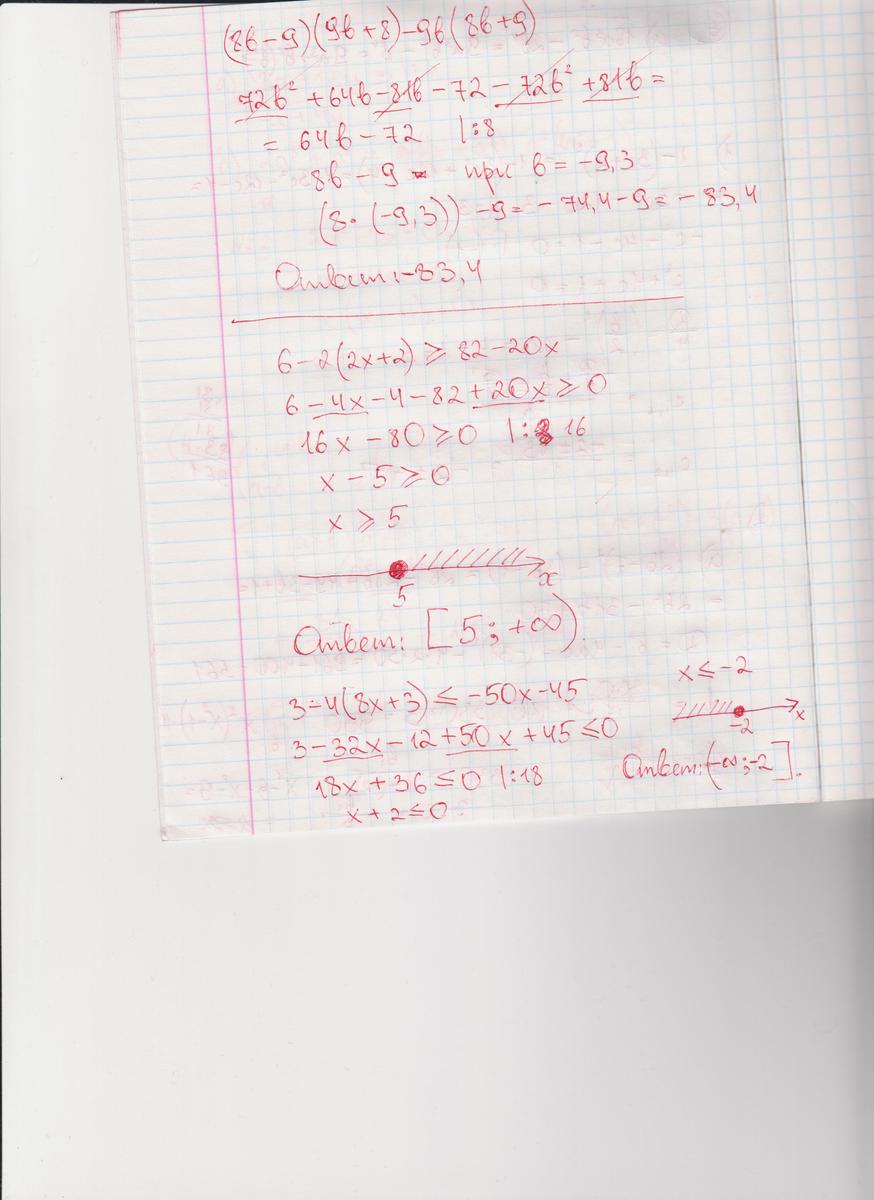 (8b-9)(9b+8)-9b(8b+9)
72b² + 64b - 81b - 72 - 72b² + 81b =
= 64b - 72 |:8
8b - 9 при b = -9,3
(8·(-9,3)) -9 = -74,4-9 = -83,4
Ответ: -83,4
6-2(2x+2) ≥ 82-20x
6-4x-4-82+20x ≥ 0
16x - 80 ≥ 0 |: 16
x - 5 ≥ 0
x ≥ 5
5 x
Ответ: [5; +∞).
3-4(8x+3) ≤ -50x-45
3-32x-12+50x+45 ≤ 0
18x + 36 ≤ 0 |:18
x + 2 ≤ 0
x ≤ -2
-2 x
Ответ: (-∞; -2].